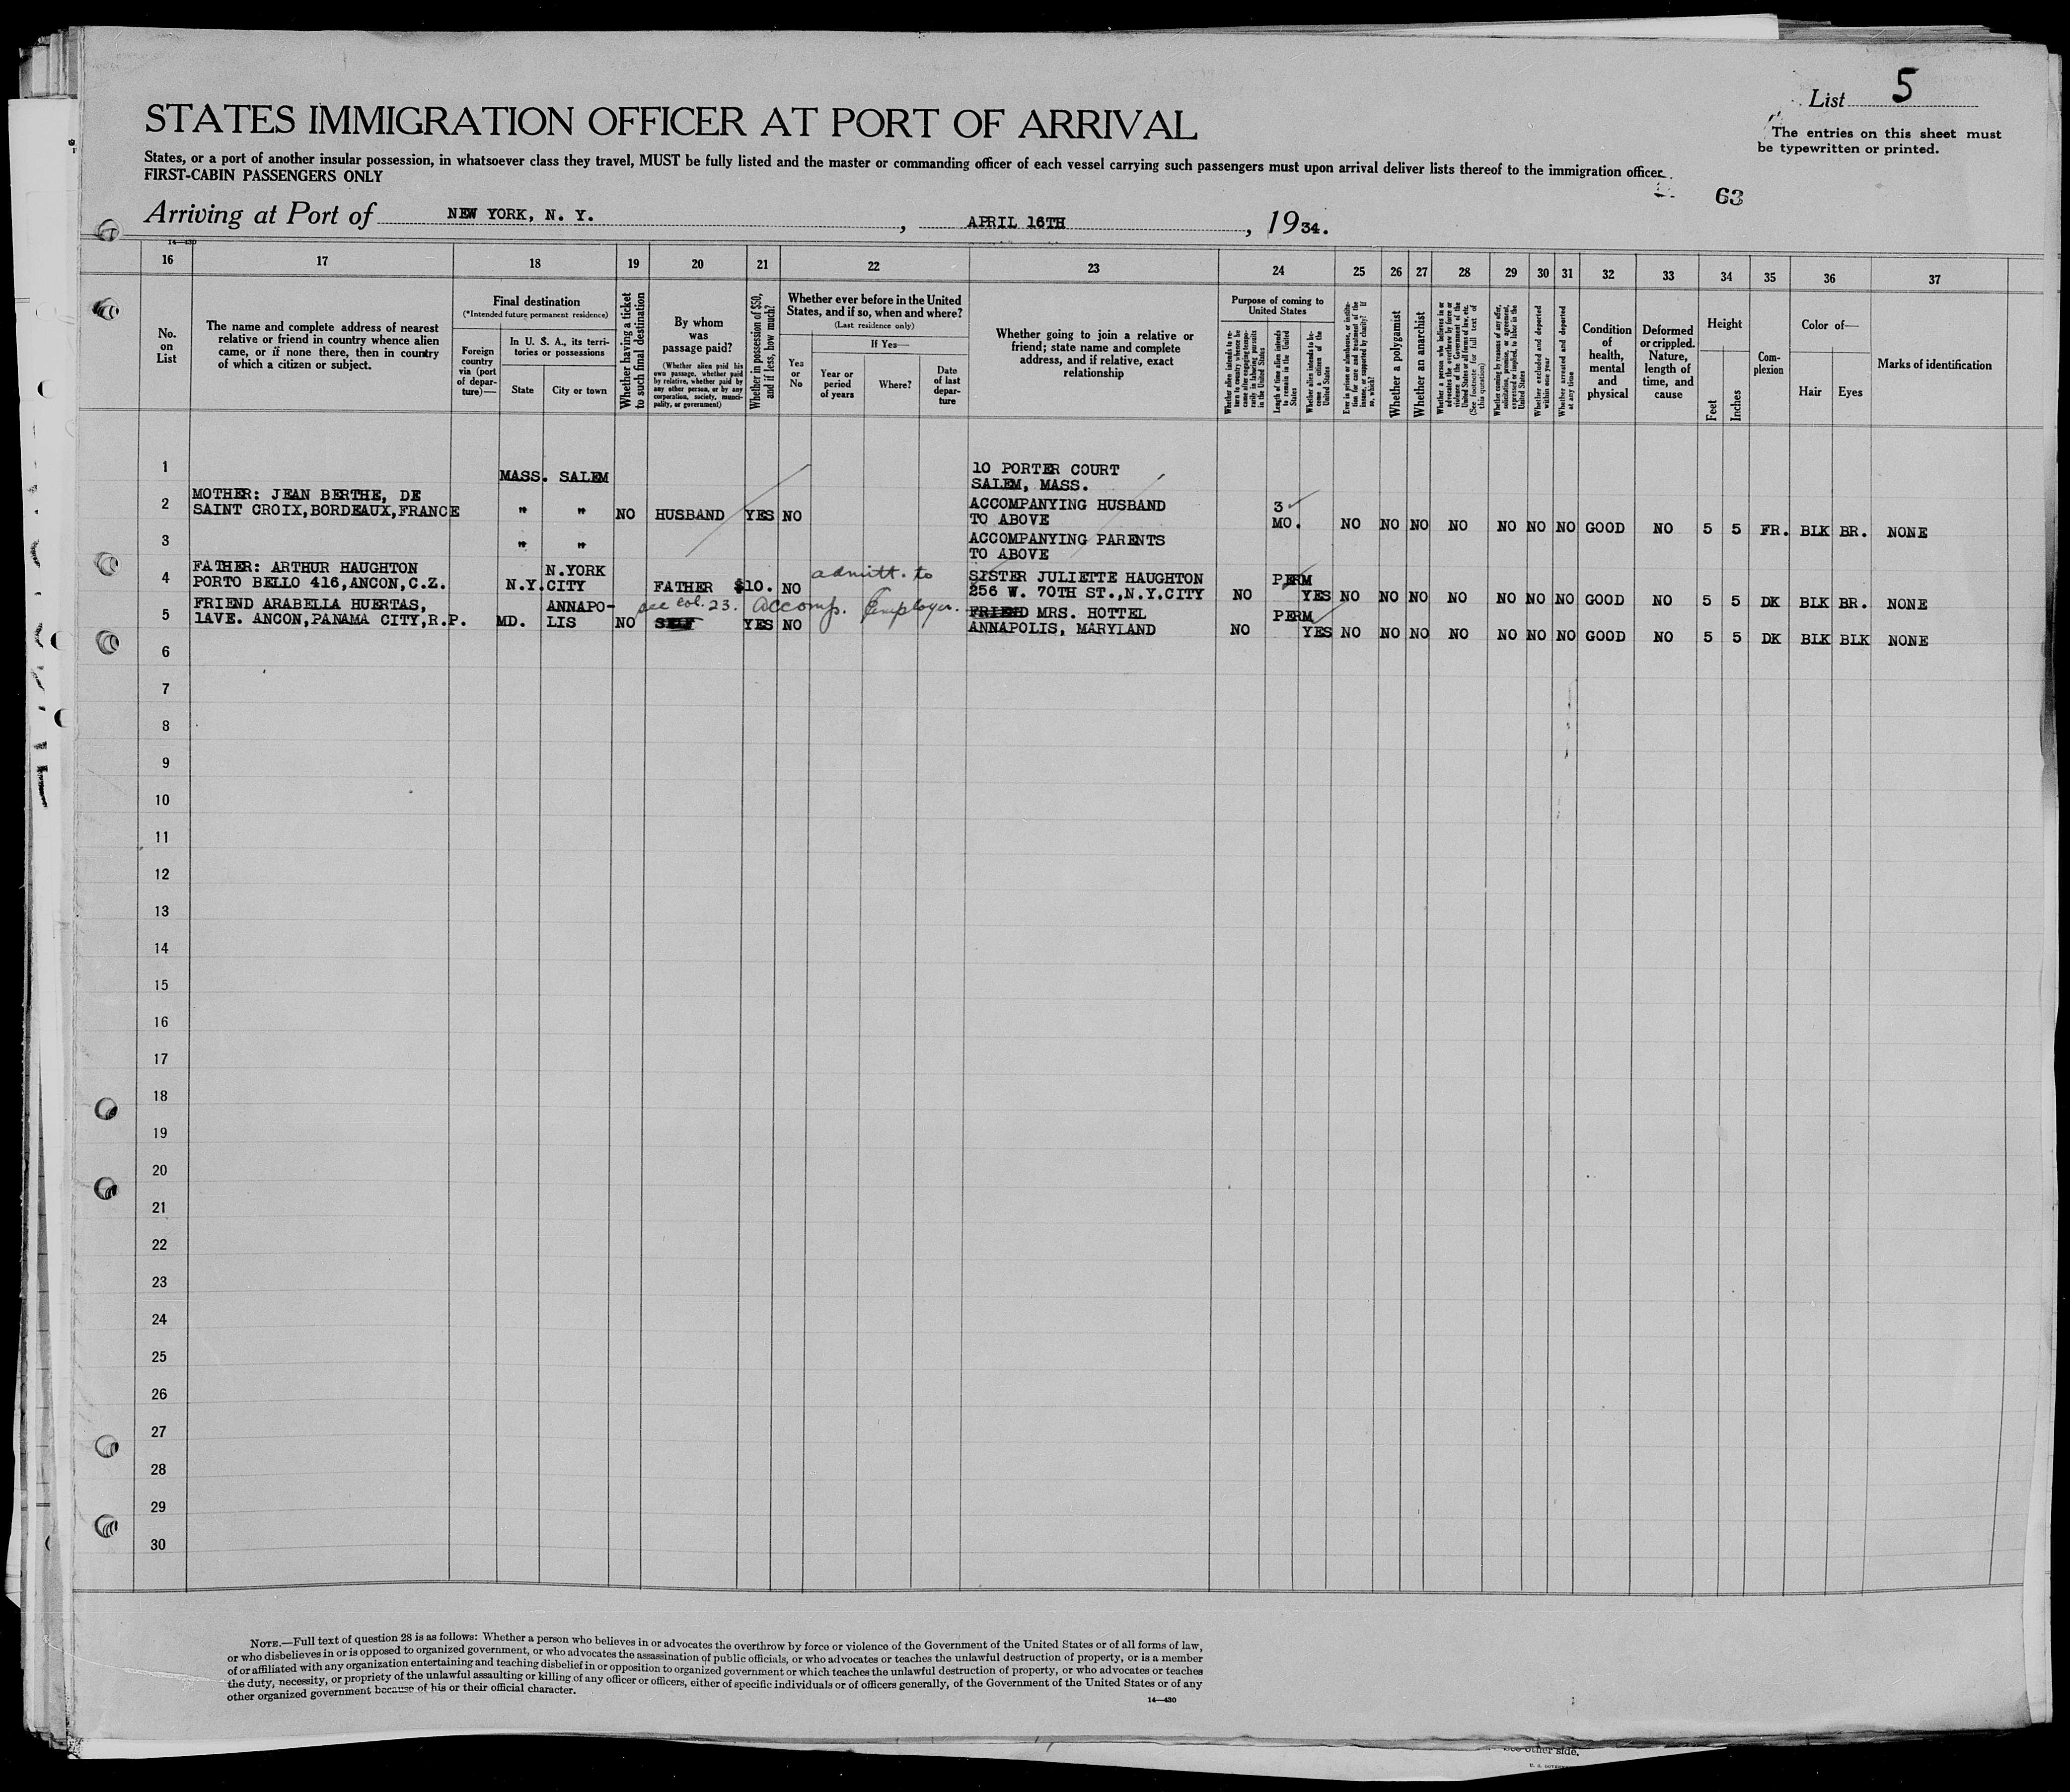 List 5
STATES IMMIGRATION OFFICER AT PORT OF ARRIVAL
The entries on this sheet must
be typewritten or printed.
States, or a port of another insular possession, in whatsoever class they travel, MUST be fully listed and the master or commanding officer of each vessel carrying such passengers must upon arrival deliver lists thereof to the immigration officer.
FIRST-CABIN PASSENGERS ONLY
63
Arriving at Port of NEW YORK, N. Y. , APRIL 16TH , 1934.
14—430
16 17 18 19 20 21 22 23 24 25 26 27 28 29 30 31 32 33 34 35 36 37
No.
on
List
The name and complete address of nearest
relative or friend in country whence alien
came, or if none there, then in country
of which a citizen or subject.
Final destination
(*Intended future permanent residence)
Foreign
country
via (port
of depar-
ture)—
In U. S. A., its terri-
tories or possessions
State
City or town
Whether having a ticket
to such final destination
By whom
was
passage paid?
(Whether alien paid his
own passage, whether paid
by relative, whether paid by
any other person, or by any
corporation, society, munici-
pality, or government)
Whether in possession of $50,
and if less, how much?
Whether ever before in the United
States, and if so, when and where?
(Last residence only)
Yes
or
No
If Yes—
Year or
period
of years
Where?
Date
of last
depar-
ture
Whether going to join a relative or
friend; state name and complete
address, and if relative, exact
relationship
Purpose of coming to
United States
Whether alien intends to re-
turn to country whence he
came after engaging tempo-
rarily in laboring pursuits
in the United States
Length of time alien intends
to remain in the United
States
Whether alien intends to be-
come a citizen of the
United States
Ever in prison or almshouse, or institu-
tion for care and treatment of the
insane, or supported by charity? If
so, which?
Whether a polygamist
Whether an anarchist
Whether a person who believes in or
advocates the overthrow by force or
violence of the Government of the
United States or all forms of law, etc.
(See footnote for full text of
this question)
Whether coming by reason of any offer,
solicitation, promise, or agreement,
expressed or implied, to labor in the
United States
Whether excluded and deported
within one year
Whether arrested and deported
at any time
Condition
of
health,
mental
and
physical
Deformed
or crippled.
Nature,
length of
time, and
cause
Height
Feet
Inches
Com-
plexion
Color of—
Hair
Eyes
Marks of identification
1 MASS. SALEM 10 PORTER COURT
SALEM, MASS.
2 MOTHER: JEAN BERTHE, DE ACCOMPANYING HUSBAND 3
SAINT CROIX,BORDEAUX,FRANCE " " NO HUSBAND YES NO TO ABOVE MO. NO NO NO NO NO NO NO GOOD NO 5 5 FR. BLK BR. NONE
3 " " ACCOMPANYING PARENTS
TO ABOVE
4 FATHER: ARTHUR HAUGHTON N.YORK admitt. to SISTER JULIETTE HAUGHTON PERM
PORTO BELLO 416,ANCON,C.Z. N.Y. CITY FATHER $10. NO 256 W. 70TH ST.,N.Y.CITY NO YES NO NO NO NO NO NO NO GOOD NO 5 5 DK BLK BR. NONE
5 FRIEND ARABELLA HUERTAS, ANNAPO- see col. 23. accomp. Employer. FRIEND MRS. HOTTEL PERM
1AVE. ANCON,PANAMA CITY,R.P. MD. LIS NO SELF YES NO ANNAPOLIS, MARYLAND NO YES NO NO NO NO NO NO NO GOOD NO 5 5 DK BLK BLK NONE
6
7
8
9
10
11
12
13
14
15
16
17
18
19
20
21
22
23
24
25
26
27
28
29
30
NOTE.—Full text of question 28 is as follows: Whether a person who believes in or advocates the overthrow by force or violence of the Government of the United States or of all forms of law,
or who disbelieves in or is opposed to organized government, or who advocates the assassination of public officials, or who advocates or teaches the unlawful destruction of property, or is a member
of or affiliated with any organization entertaining and teaching disbelief in or opposition to organized government or which teaches the unlawful destruction of property, or who advocates or teaches
the duty, necessity, or propriety of the unlawful assaulting or killing of any officer or officers, either of specific individuals or of officers generally, of the Government of the United States or of any
other organized government because of his or their official character.
14—430
See other side.